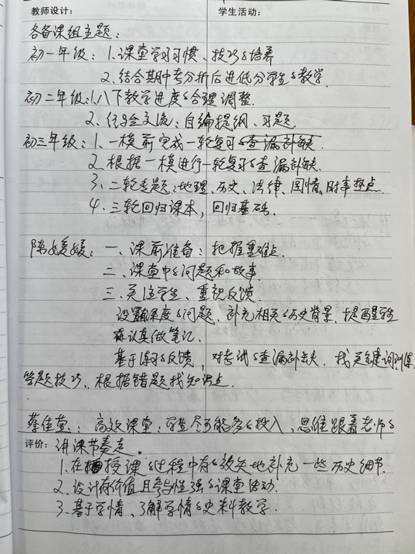 教师设计：  学生活动：
各备课组主题：
初一年级：1.课堂学习习惯、技巧的培养
2.结合期中考分析后进低分学生的教学
初二年级：1.八下教学进度的合理调整.
2.经验交流：自编提纲、习题
初三年级：1.一模前完成一轮复习的查漏补缺.
2.根据一模进行一轮复习的查漏补缺.
3.二轮专题：地理、历史、法律、国情、时事热点.
4.三轮回归课本，回归基础.
陈媛媛：一、课前准备：把握重难点.
二、课堂中的问题和故事
三、关注学生、重视反馈.
设置难度的问题、补充相关的历史背景、提醒学生
要认真做笔记.
基于练习的反馈，对考试的查漏补缺、找关键词训练
答题技巧、根据错题找知识点
佳萱：高效课堂，学生尽可能多的投入，思维跟着老师的
评价：讲课节奏走。
1.在授课的过程中有的放矢地补充一些历史细节.
2.设计有价值且参与性强的课堂活动.
3.基于学情、了解学情的史料教学.